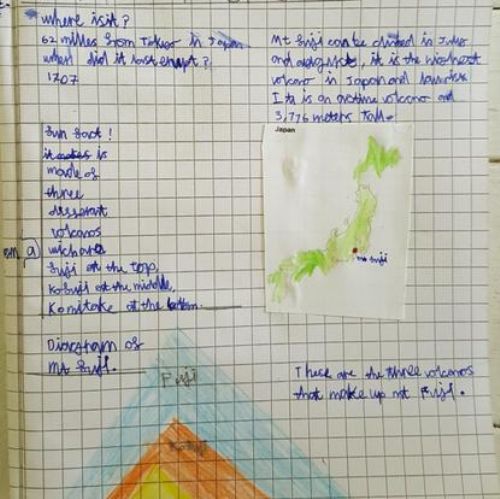 Where is it?
62 miles from Tokeo in Japan
when did it last erupt?
1707
Mt Fuji can be climbed in July
and august, it is the highest
volcano in Japan and
Its is an active volcano and
3,776 meters tall.
fun fact!
it makes is
made of
three
different
volcanos
wich are
fuji at the top,
Kofuji at the middle,
Komitake at the bottom.
a
Japan
mt fuji
Diagram of
mt fuji.
Fuji
These are the three volcanos
that make up mt Fuji.